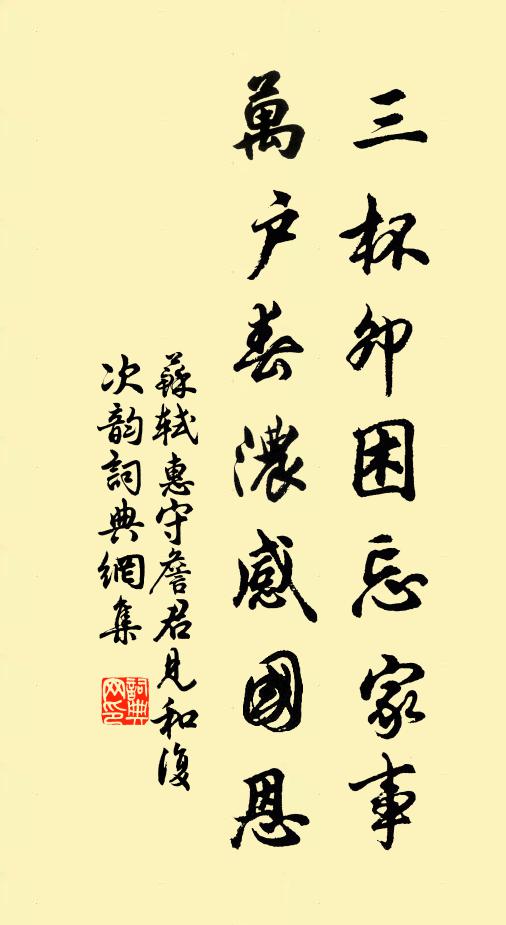 三杯卯困忘家事
萬户春濃感國恩
蘇軾惠守詹君見和復
次韵詞典網集
詞典
网印